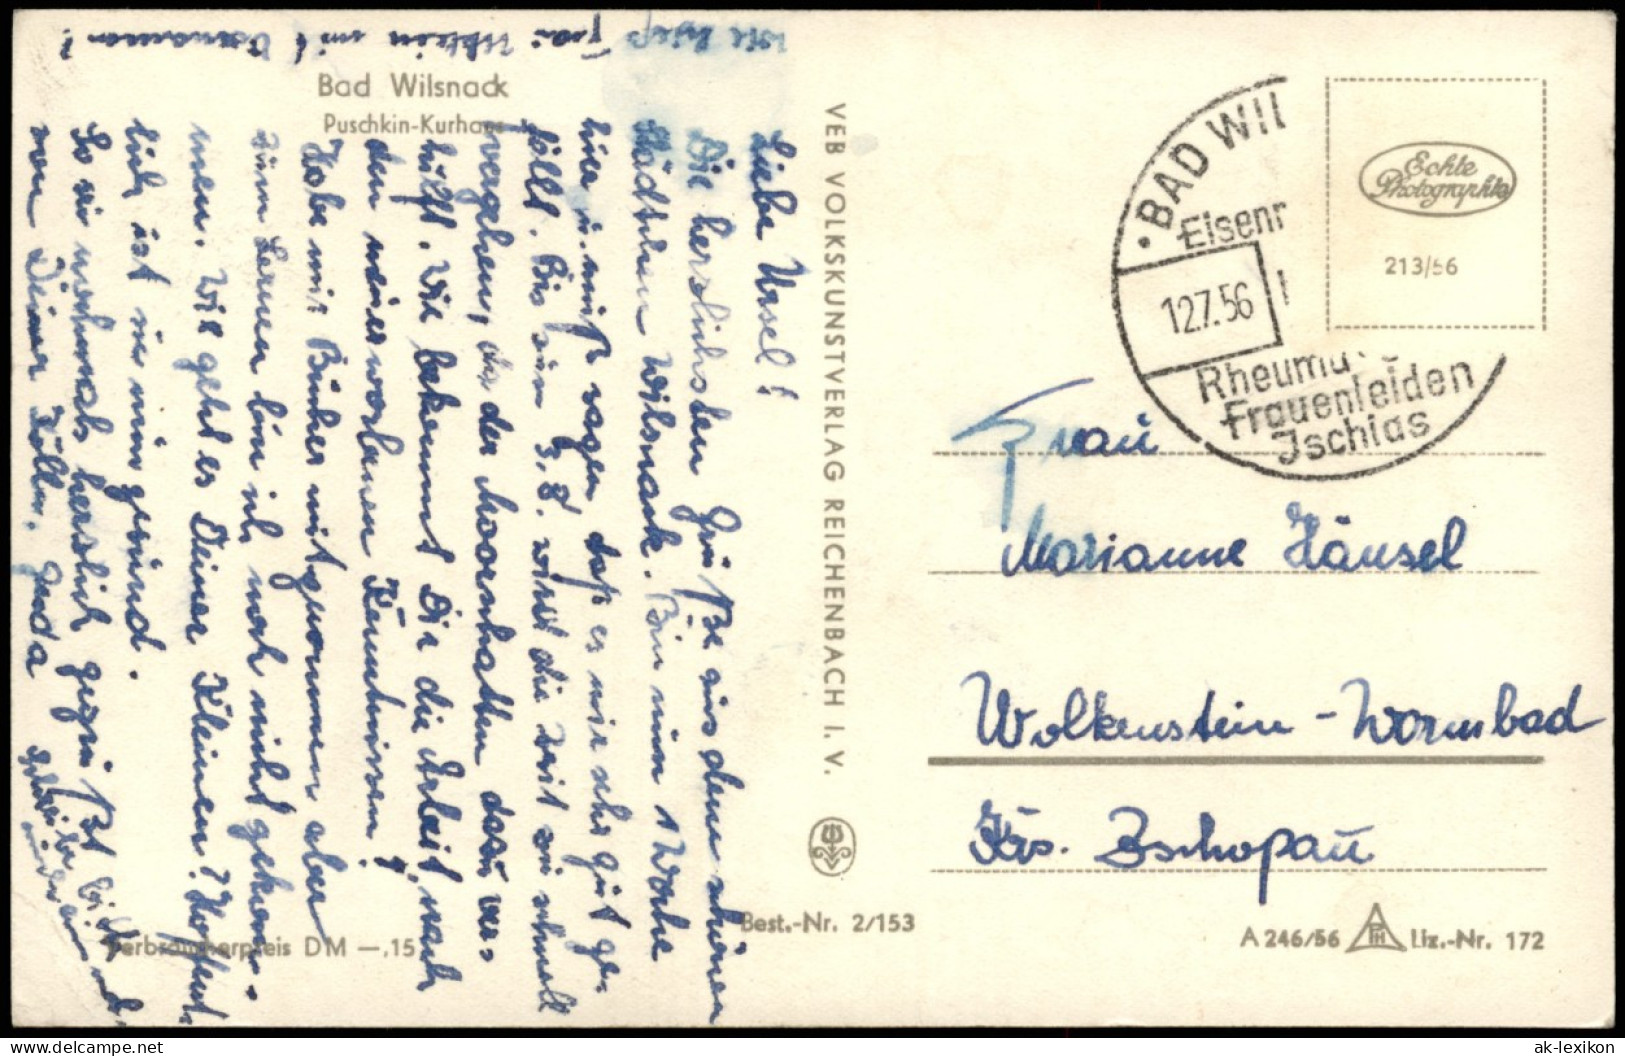 Bad Wilsnack
Puschkin-Kurhaus
Liebe Ursel!
Die herzlichsten Grüße aus dem schönen
Städtchen Wilsnack. Bin nun 1 Woche
hier u. muß sagen, daß es mir sehr gut ge-
fällt. Bis zum 3.8. wird die Zeit so schnell
vergehen, da der Moorschatten dazu ver-
hilft. Wie bekommt Dir die Arbeit nach
den neuerworbenen Kenntnissen?
Habe mir Bücher mitgenommen aber
zum Lernen bin ich noch nicht gekom-
men. Wie geht es Deiner Kleinen? Hoffent-
lich ist sie nun gesund.
So sei nochmals herzlich gegrüßt
von Deiner
Wie hieß Frau mit Vornamen?
VEB VOLKSKUNSTVERLAG REICHENBACH I. V.
BAD WIL
Eisenm
12.7.56
Rheuma
Frauenleiden
Ischias
Echte
Photographie
213/56
Frau
Marianne Hänsel
Wolkenstein-Warmbad
Krs. Zschopau
Verbraucherpreis DM —,15
Best.-Nr. 2/153
A 246/56
Liz.-Nr. 172
ak-lexikon